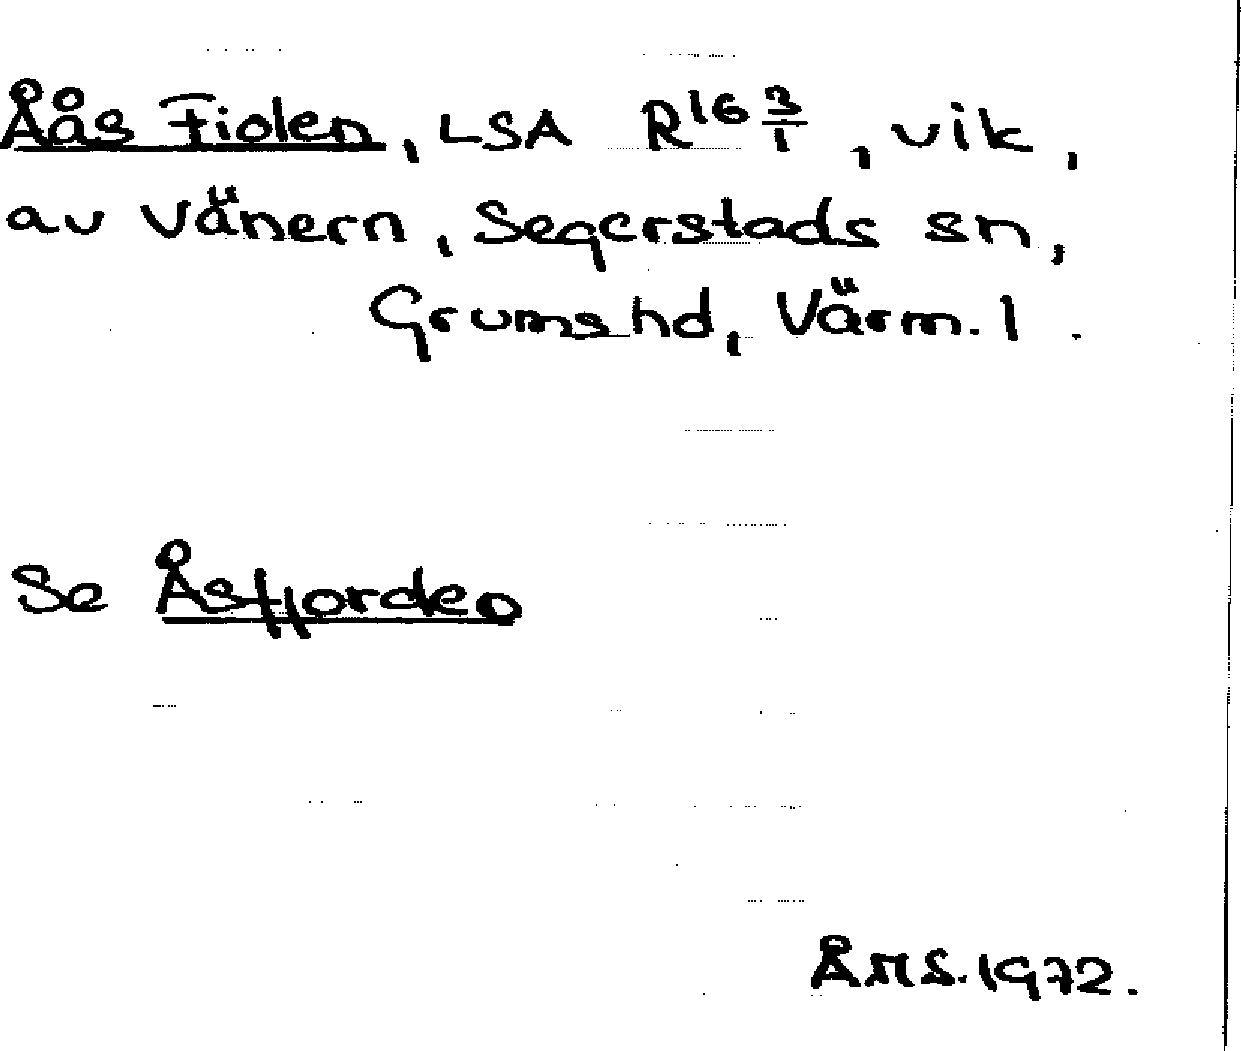 Åås Fiolen, LSA R16 3/1, vik,
av Vänern, Segerstads sn,
Grums hd, Värm. l.
Se Åsfjorden
ÅMS. 1972.